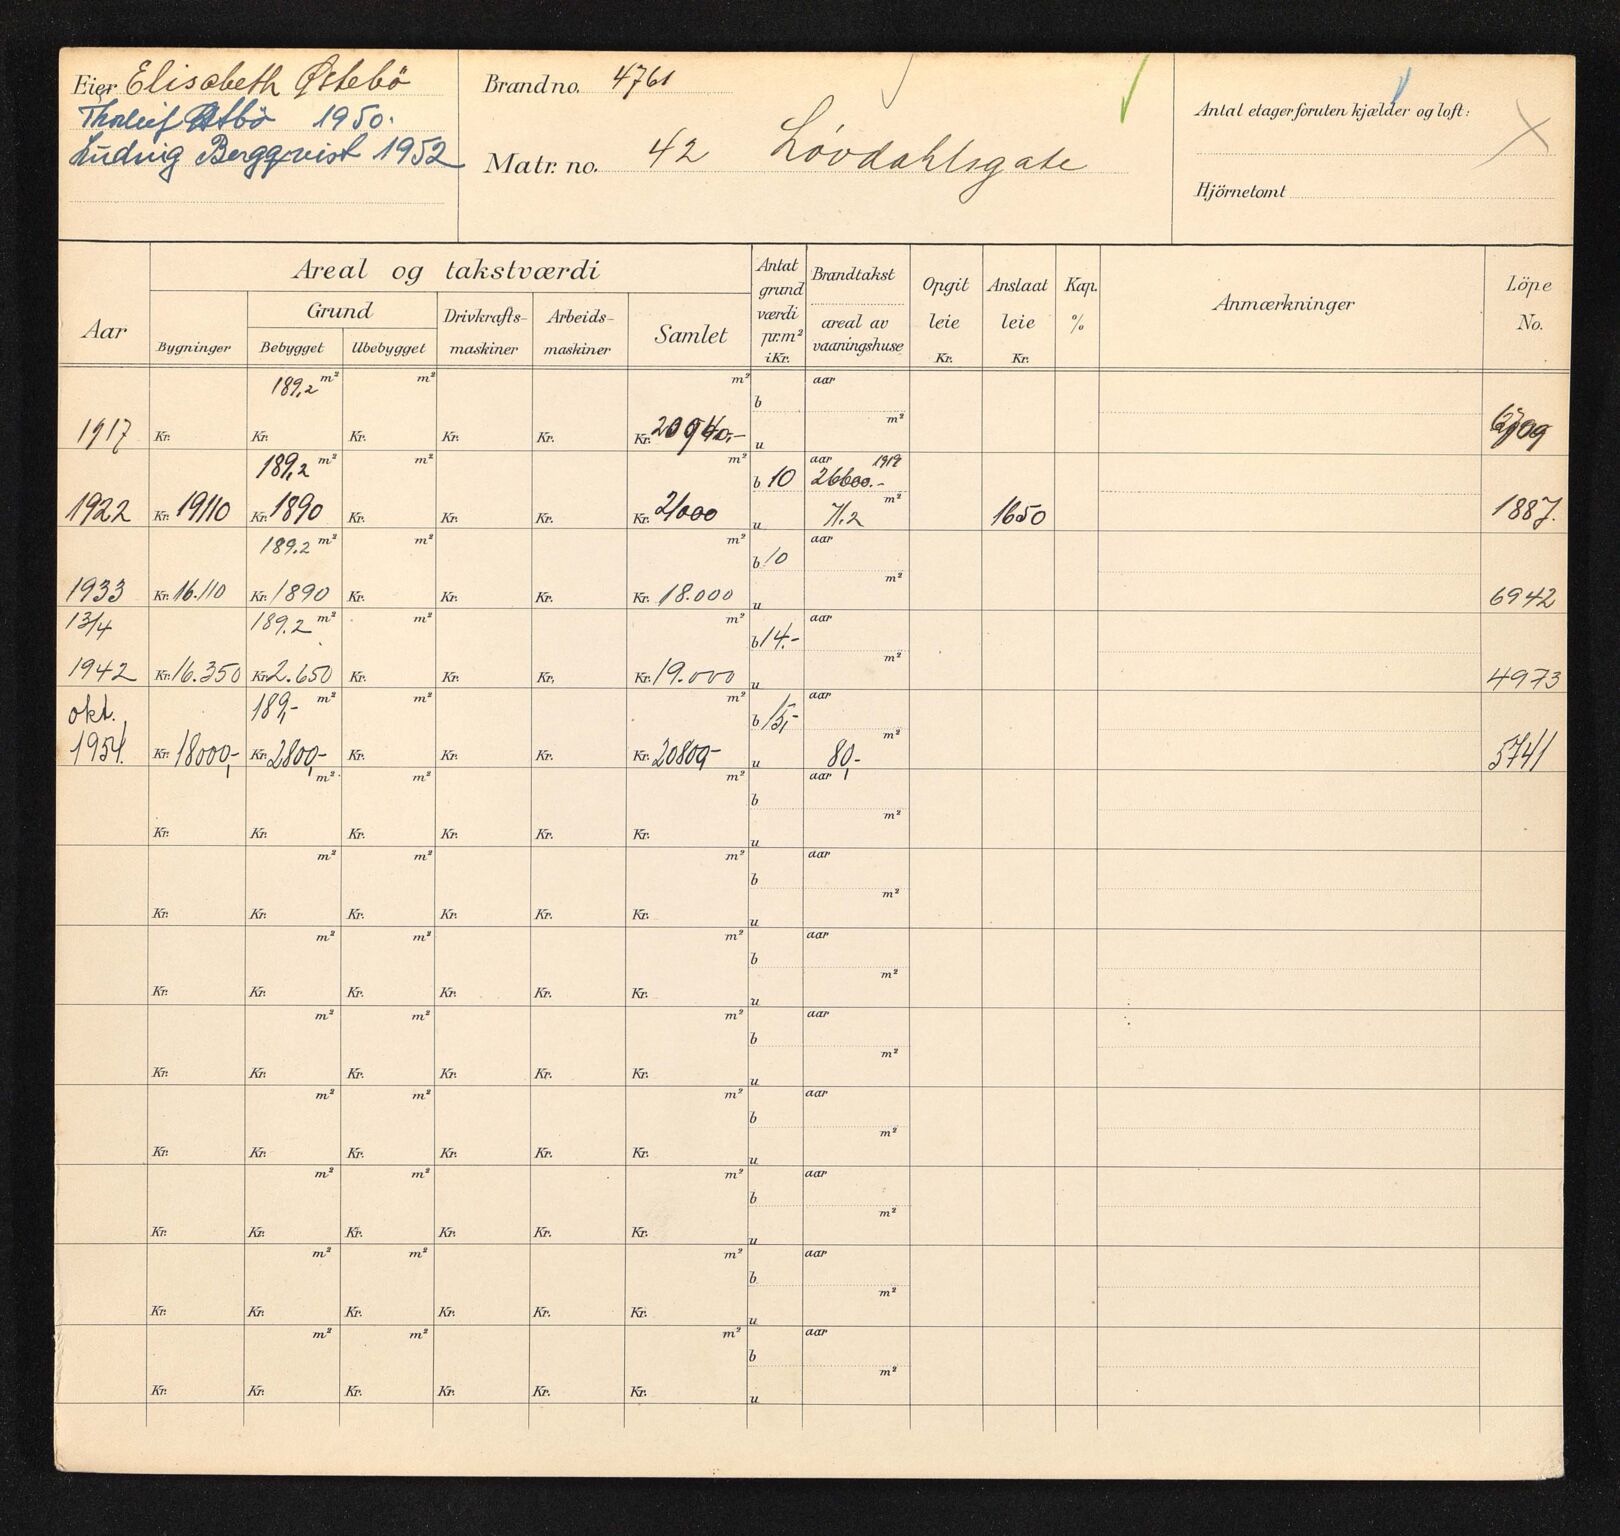 Eier Elisabeth Østebö
Tholeif Østbö 1950.
Ludvig Bergqvist 1952
Brand no. 4761
Matr. no. 42 Lövdahlsgate
Antal etager foruten kjælder og loft:
Hjörnetomt
Aar
Areal og takstværdi
Grund
Bygninger
Bebygget
Ubebygget
Drivkrafts-
maskiner
Arbeids-
maskiner
Samlet
Antat
grund
værdi
pr. m²
i Kr.
Brandtakst
areal av
vaaningshuse
Opgit
leie
Kr.
Anslaat
leie
Kr.
Kap.
%
Anmærkninger
Löpe
No.
189,2 m² m² m² b aar
1917 Kr. Kr. Kr. Kr. Kr. Kr. 20940,- u m²
189,2 m² m² m² b 10 aar 1919 26600.-
1922 Kr. 19110 Kr. 1890 Kr. Kr. Kr. Kr. 21000 u 71.2 m² 1650 1887.
189.2 m² m² m² b 10 aar
1933 Kr. 16.110 Kr. 1890 Kr. Kr. Kr. Kr. 18.000 u m² 6942
13/4 189.2 m² m² m² b 14.- aar
1942 Kr. 16.350 Kr. 2.650 Kr. Kr. Kr. Kr. 19.000 u m² 4973
okt. 189,- m² m² m² b 15,- aar
1954. Kr. 18000,- Kr. 2800,- Kr. Kr. Kr. Kr. 20800,- u 80,- m² 5741
m² m² m² b aar
Kr. Kr. Kr. Kr. Kr. Kr. u m²
m² m² m² b aar
Kr. Kr. Kr. Kr. Kr. Kr. u m²
m² m² m² b aar
Kr. Kr. Kr. Kr. Kr. Kr. u m²
m² m² m² b aar
Kr. Kr. Kr. Kr. Kr. Kr. u m²
m² m² m² b aar
Kr. Kr. Kr. Kr. Kr. Kr. u m²
m² m² m² b aar
Kr. Kr. Kr. Kr. Kr. Kr. u m²
m² m² m² b aar
Kr. Kr. Kr. Kr. Kr. Kr. u m²
m² m² m² b aar
Kr. Kr. Kr. Kr. Kr. Kr. u m²